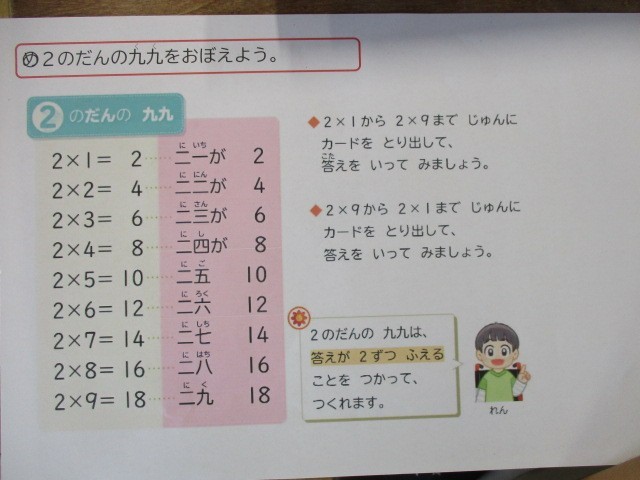 め 2のだんの九九をおぼえよう。
2 のだんの 九九
2×1= 2 …… 二一が 2
2×2= 4 …… 二二が 4
2×3= 6 …… 二三が 6
2×4= 8 …… 二四が 8
2×5=10 …… 二五 10
2×6=12 …… 二六 12
2×7=14 …… 二七 14
2×8=16 …… 二八 16
2×9=18 …… 二九 18
◆2×1から 2×9まで じゅんに
カードを とり出して、
答えを いって みましょう。
◆2×9から 2×1まで じゅんに
カードを とり出して、
答えを いって みましょう。
2のだんの 九九は、
答えが 2ずつ ふえる
ことを つかって、
つくれます。
れん